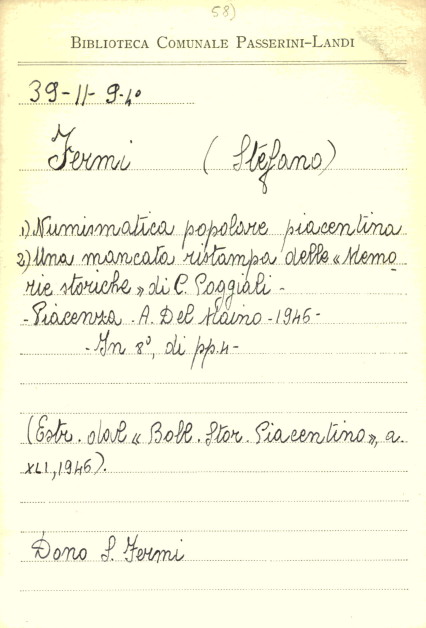 58)
BIBLIOTECA COMUNALE PASSERINI-LANDI
39-11-9-4°
Fermi (Stefano)
1) Numismatica popolare piacentina
2) Una mancata ristampa delle « Memo
rie storiche » di C. Poggiali -
- Piacenza - A. Del Maino - 1946 -
- In 8°, di pp. 4 -
(Estr. dal « Boll. Stor. Piacentino », a.
XLI, 1946).
Dono S. Fermi